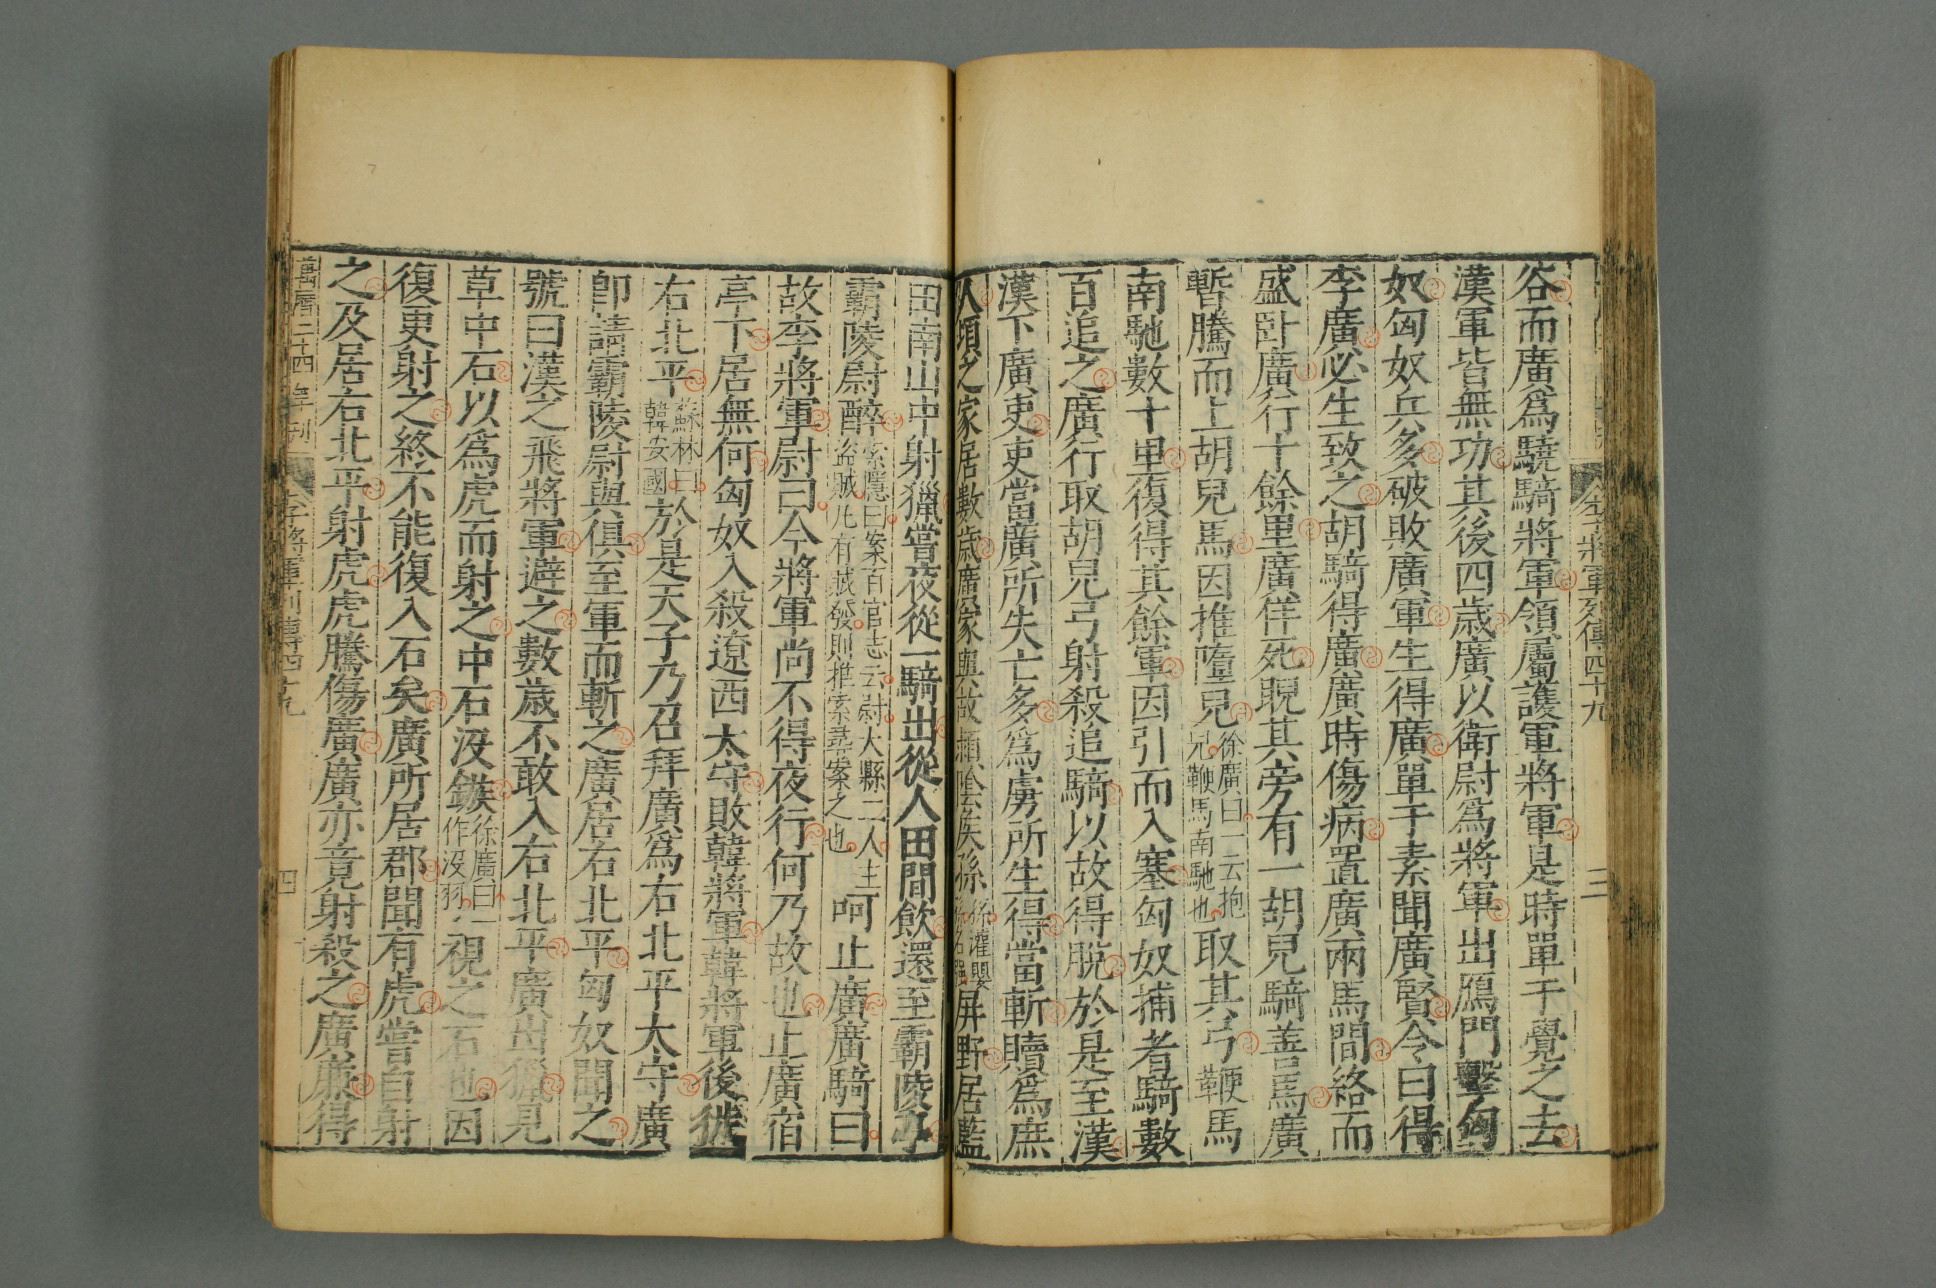 李將軍列傳四十九
三
谷而廣爲驍騎將軍領屬護軍將軍是時單于覺之去
漢軍皆無功其後四歲廣以衛尉爲將軍出鴈門擊匈
奴匈奴兵多破敗廣軍生得廣單于素聞廣賢令曰得
李廣必生致之胡騎得廣廣時傷病置廣兩馬間絡而
盛卧廣行十餘里廣佯死睨其旁有一胡兒騎善馬廣
暫騰而上胡兒馬因推墮兒徐廣曰一云抱兒鞭馬南馳也取其弓鞭馬
南馳數十里復得其餘軍因引而入塞匈奴捕者騎數
百追之廣行取胡兒弓射殺追騎以故得脱於是至漢
漢下廣吏吏當廣所失亡多爲虜所生得當斬贖爲庶
人頃之家居數歲廣家與故潁陰矦孫孫灌嬰孫名强屏野居藍
田南山中射獵嘗夜從一騎出從人田間飲還至霸陵亭
霸陵尉醉索隱曰案百官志云尉大縣二人主盜賊凡有賊發則推索尋案之也呵止廣廣騎曰
故李將軍尉曰今將軍尚不得夜行何乃故也止廣宿
亭下居無何匈奴入殺遼西太守敗韓將軍韓將軍後徙
右北平蘇林曰韓安國於是天子乃召拜廣爲右北平太守廣
卽請霸陵尉與俱至軍而斬之廣居右北平匈奴聞之
號曰漢之飛將軍避之數歲不敢入右北平廣出獵見
草中石以爲虎而射之中石沒鏃徐廣曰一作沒羽視之石也因
復更射之終不能復入石矣廣所居郡聞有虎嘗自射
之及居右北平射虎虎騰傷廣廣亦竟射殺之廣廉得
萬曆二十四年刊
李將軍列傳四十九
四